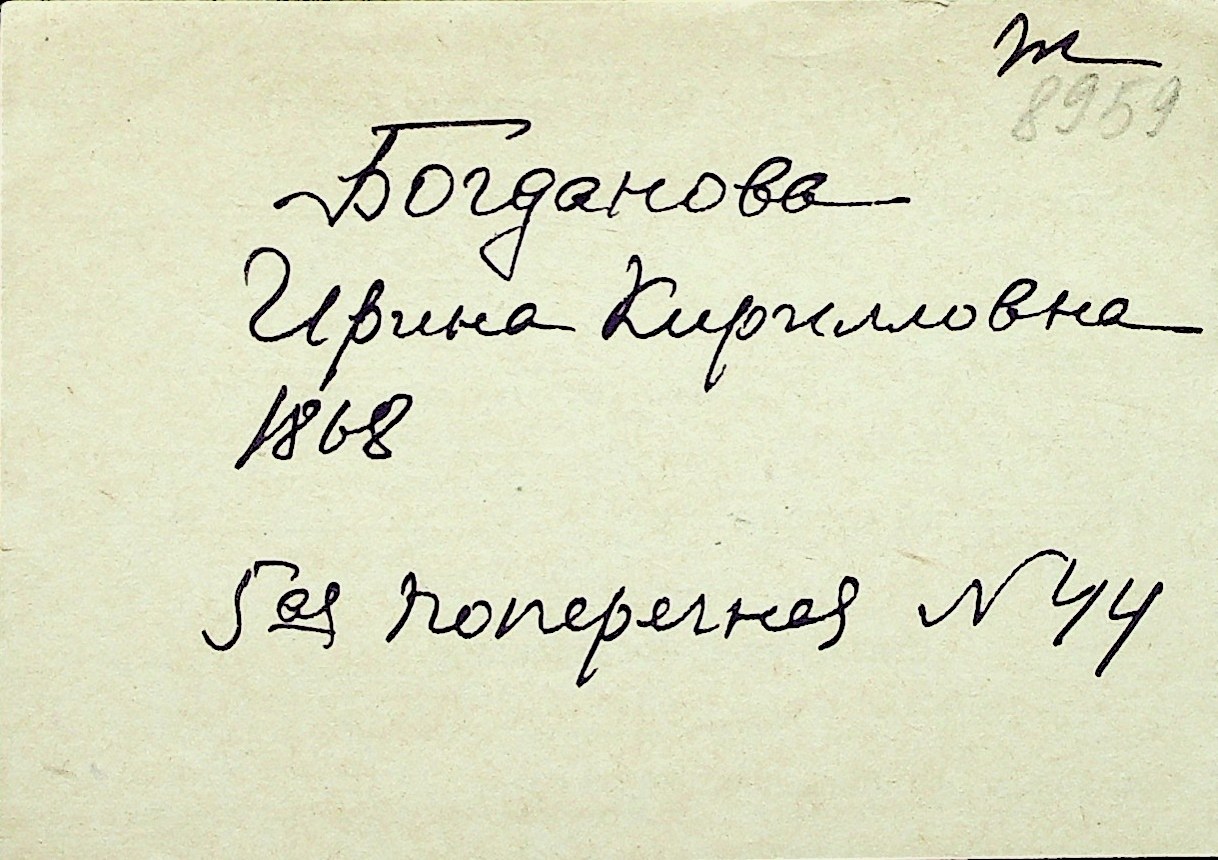 8959
Богданова
Ирина Кирилловна
1868
5ая поперечная N 44